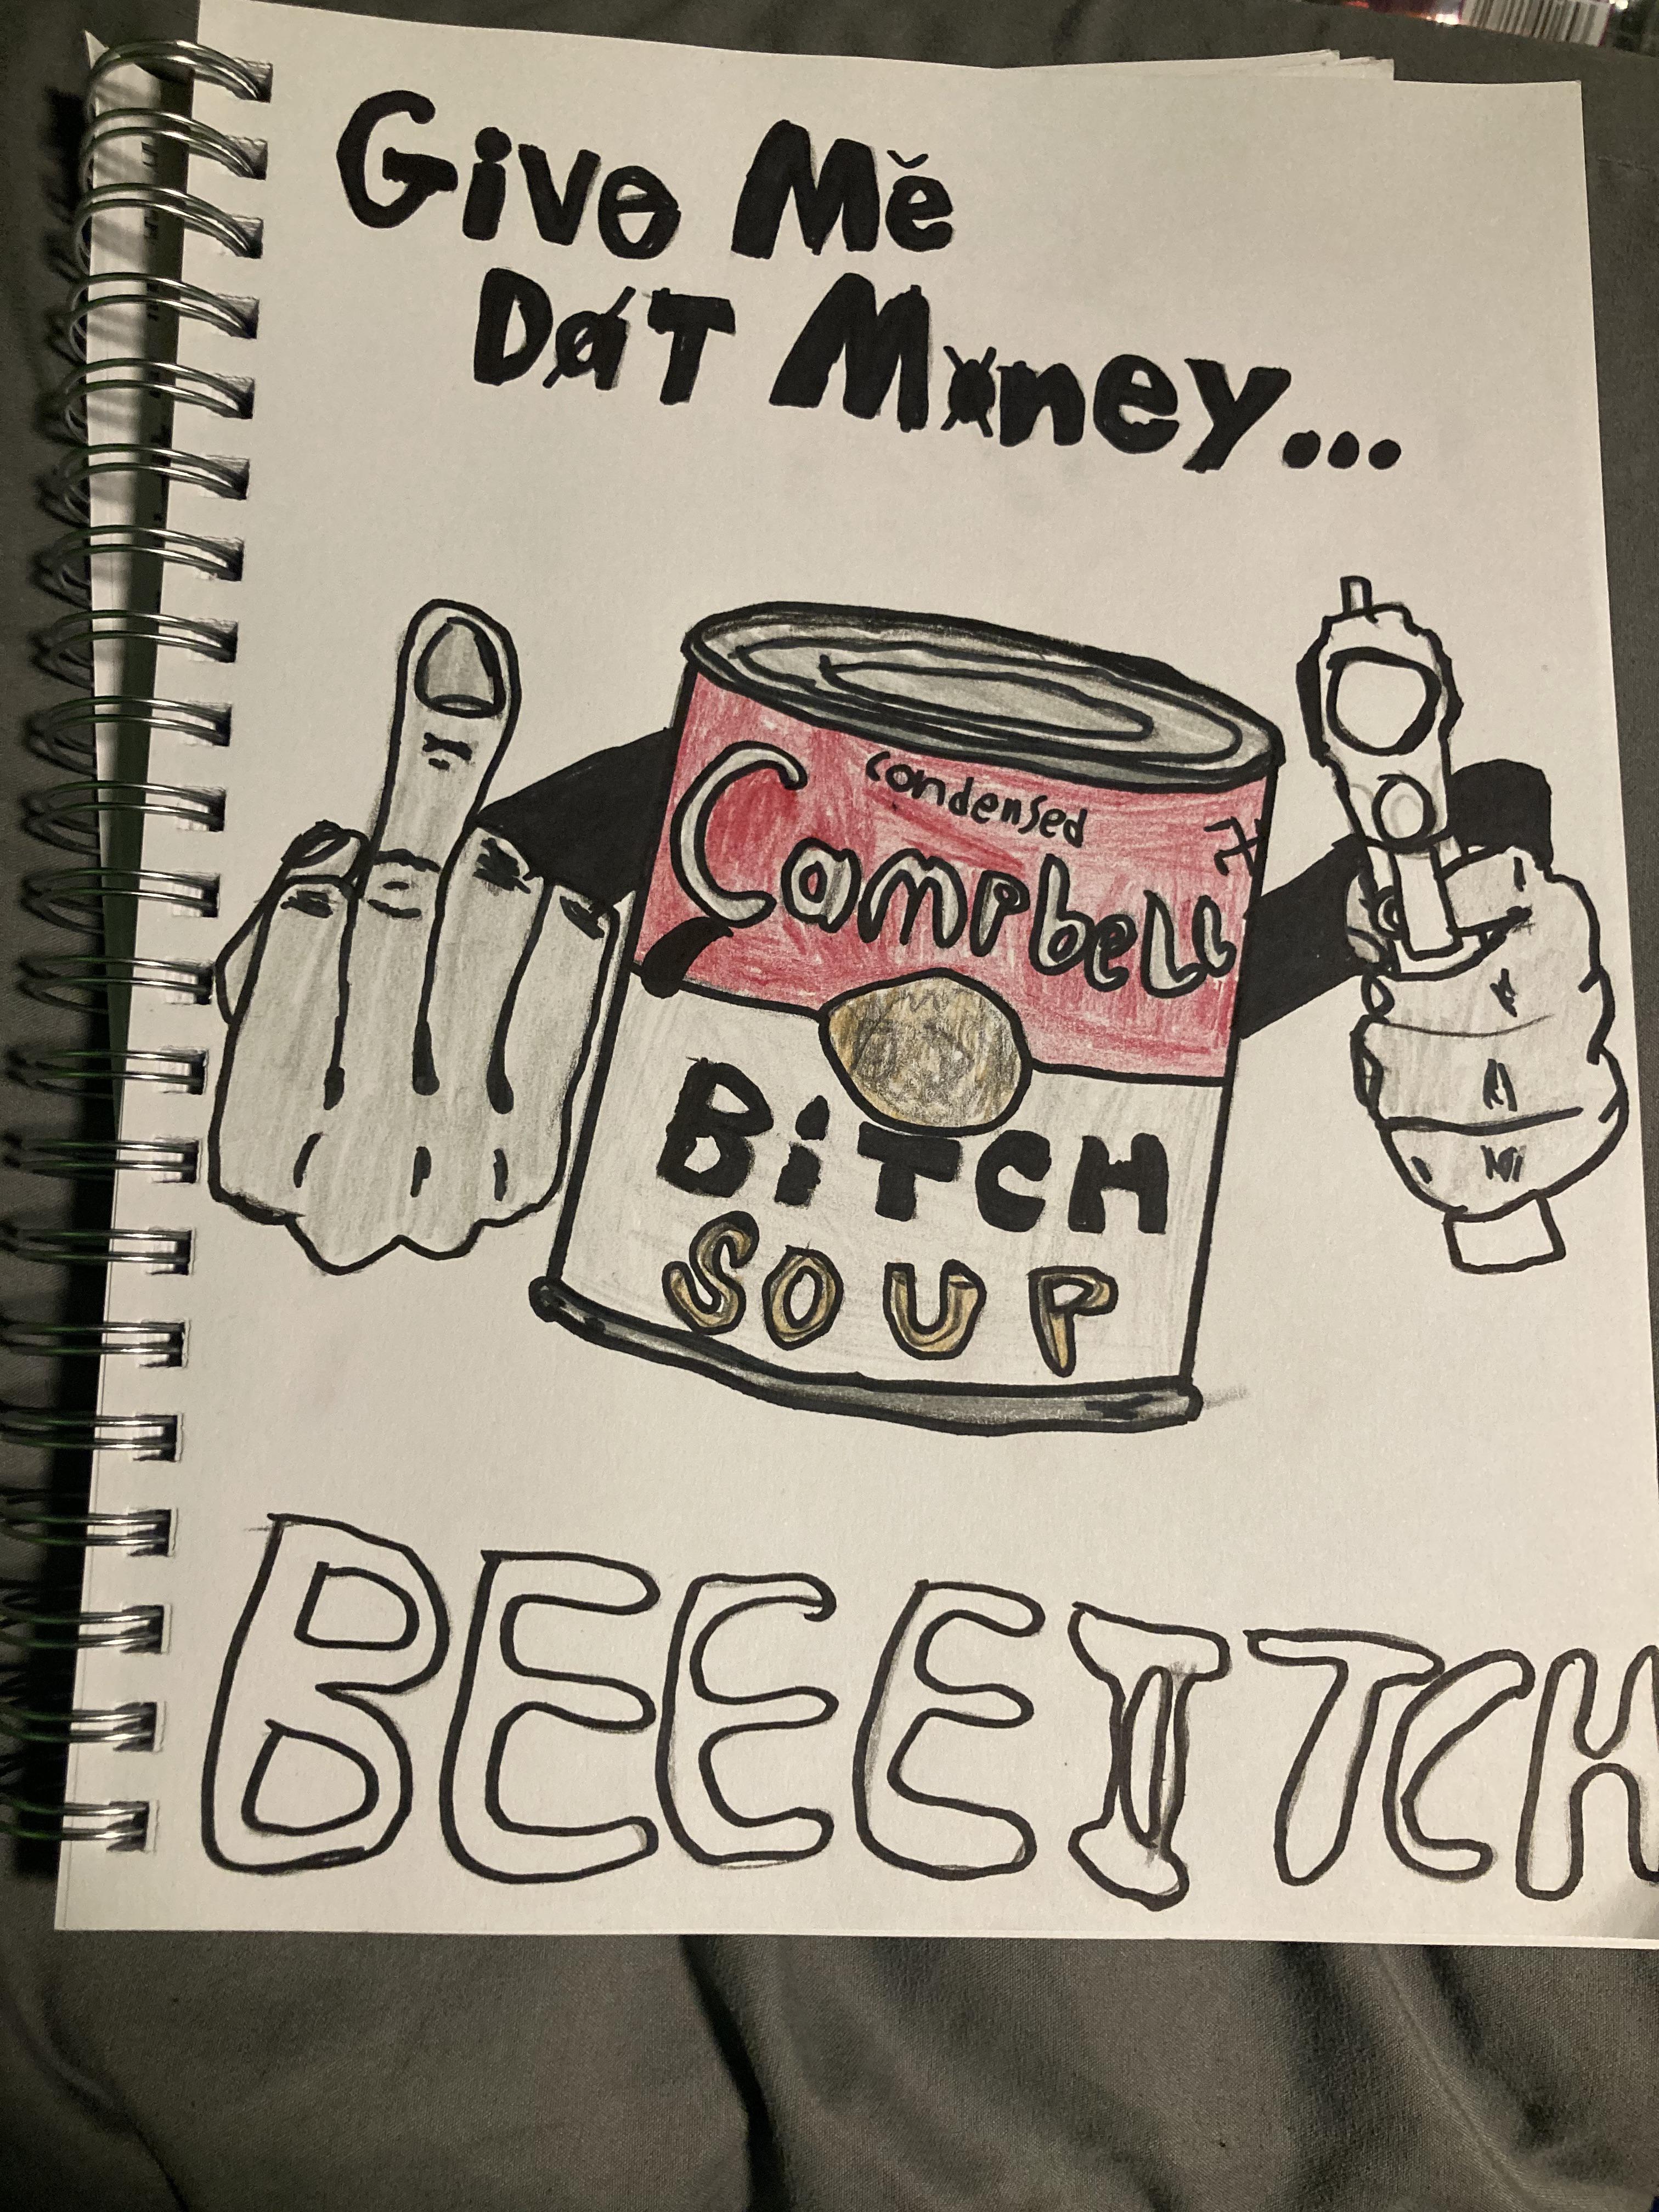 Give Mĕ
DØT Money...
condensed
Campbell
BiTCH
SOUP
BEEEITCH